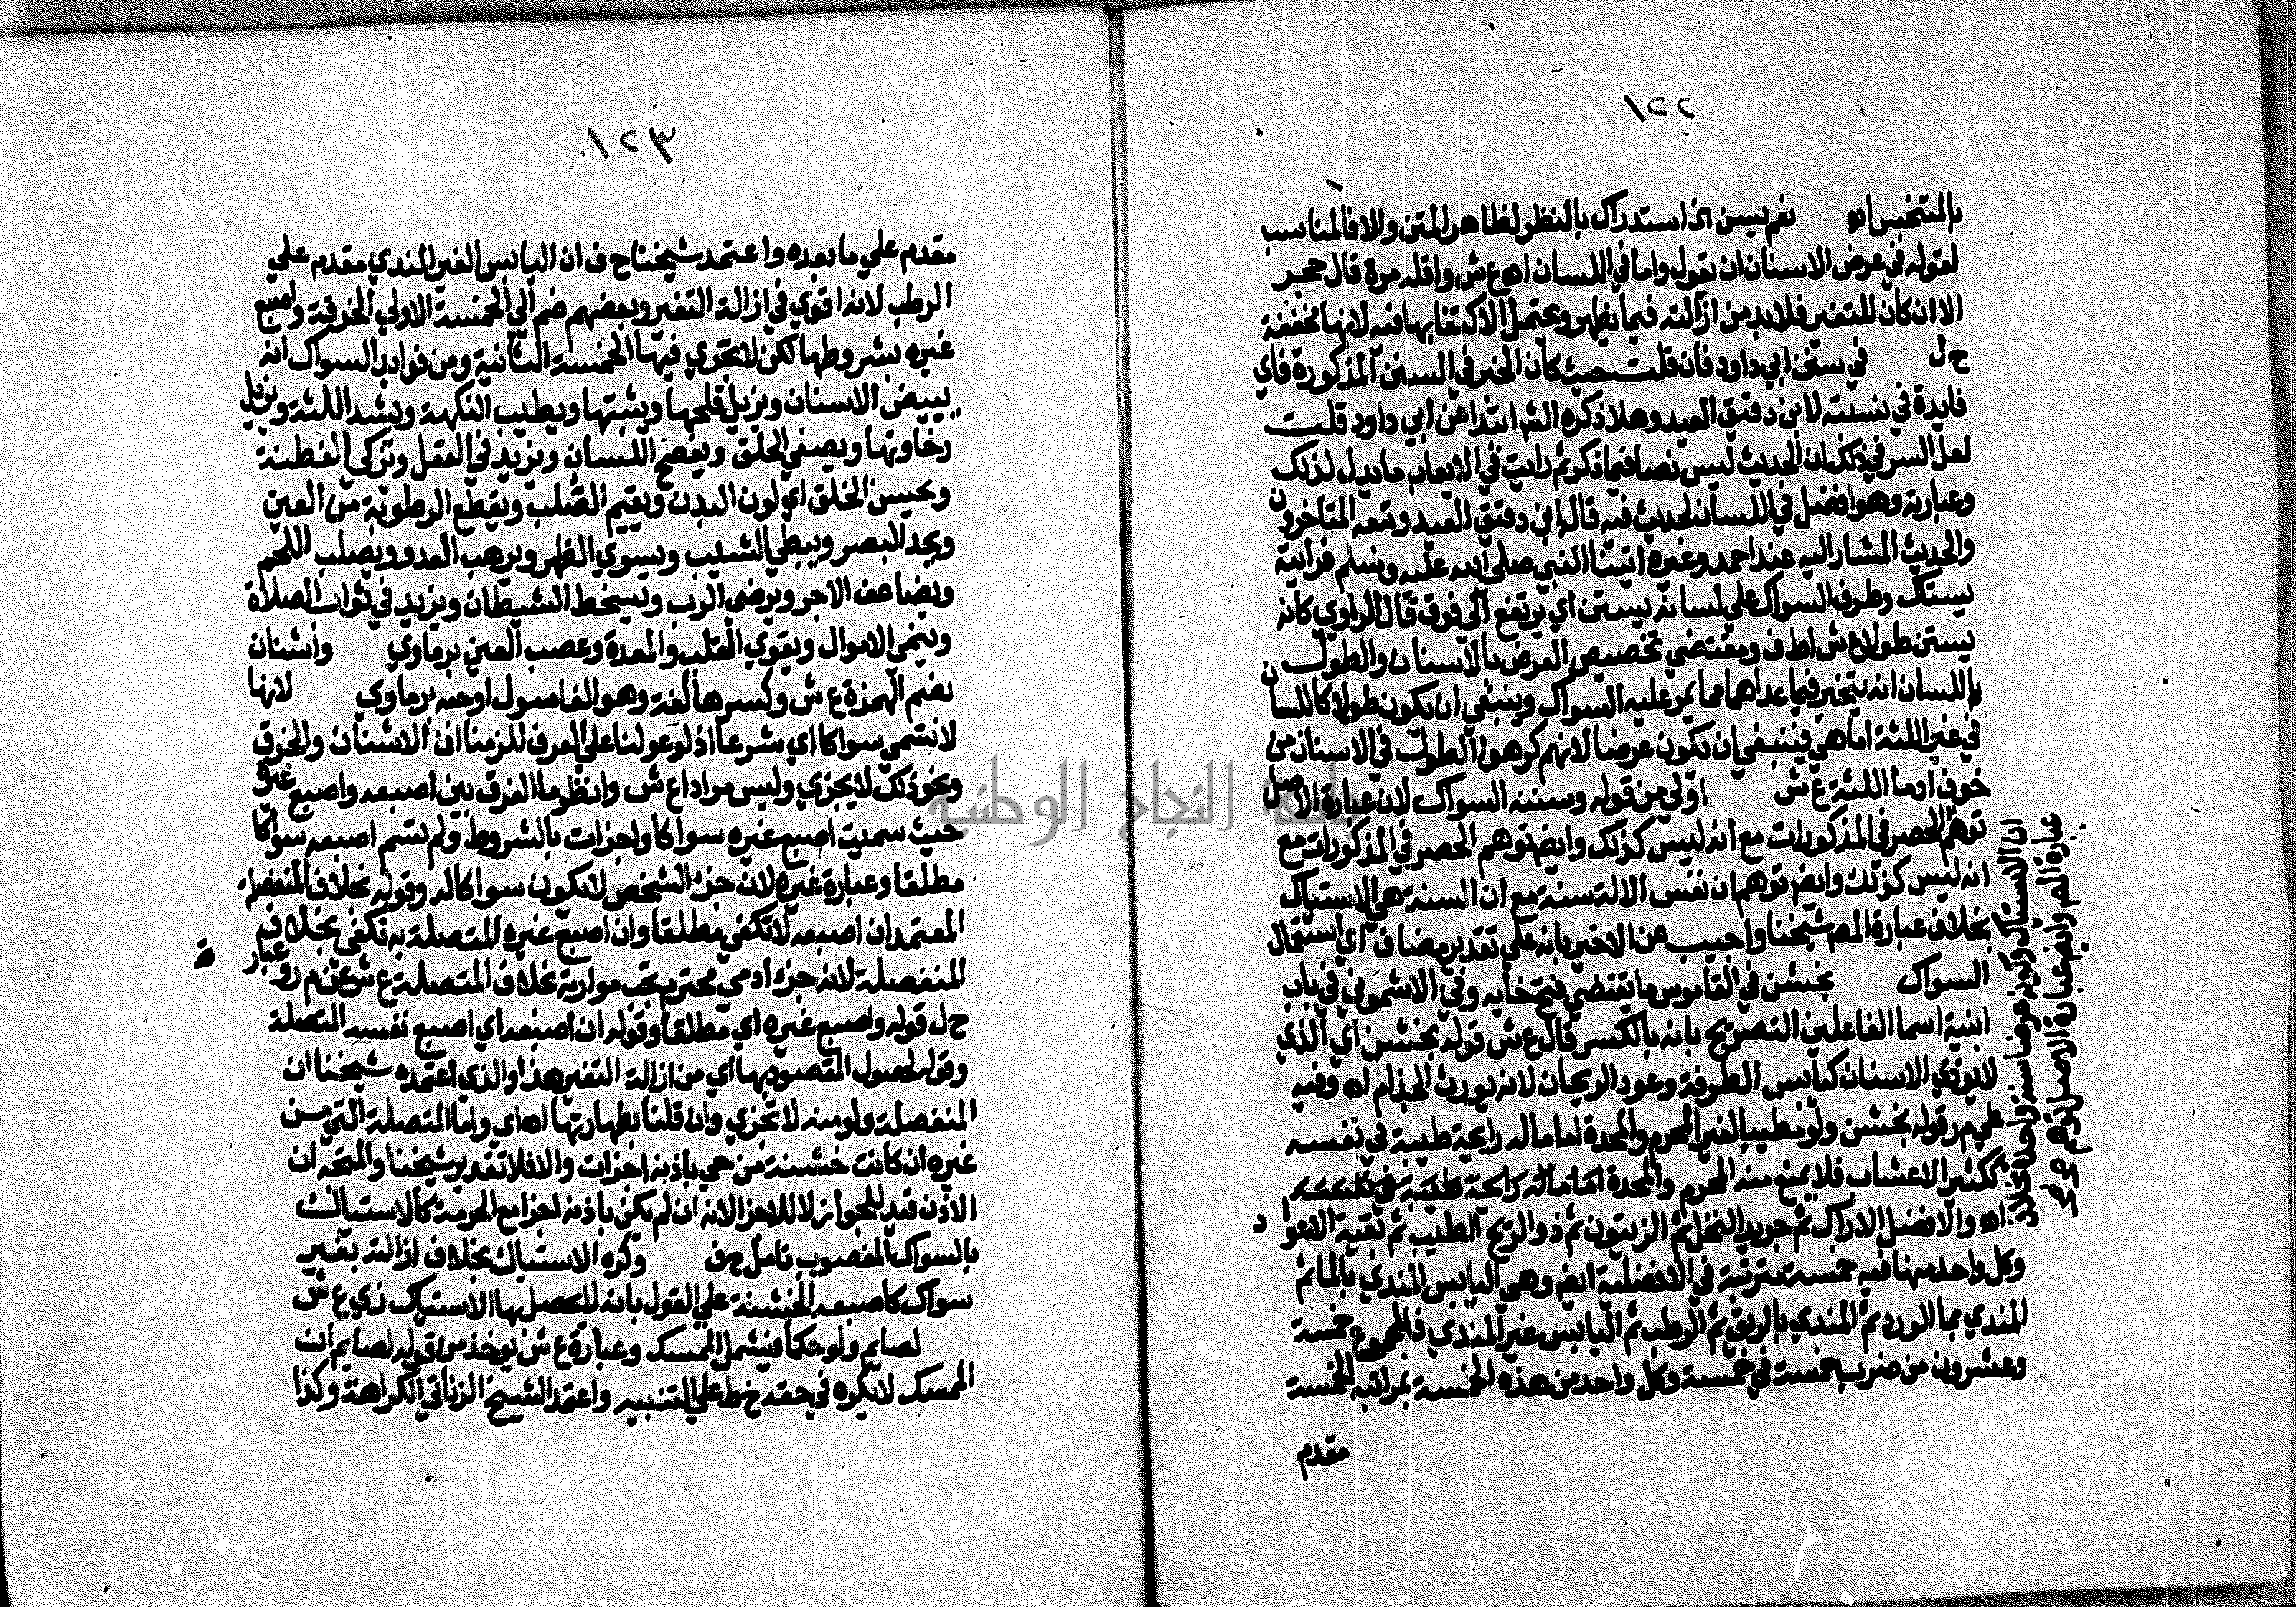 ١٢٢
بالمتنجس اه نعم يسن اي استدراك بالنظر لظاهر المتن والا فالمناسب
لقوله في عرض الاسنان ان يقول واما في اللسان اه ع ش واقله مرة قال حجر
الا ان كان للتغير فلا بد من ازالته فيما يظهر ويحتمل الاكتفا بها فيه لانها مخففة
ح ل في سنن ابي داود فان قلت حيث كان الخبر في السنن المذكورة فاي
فايدة في نسبته لابن دقيق العيد وهلا ذكره الش ابتداء عن ابي داود قلت
لعل السر في ذلك ان الحديث ليس نصا فيما ذكر ثم رايت في الايعاب ما يدل لذلك
وعبارته وهو افضل في اللسان لحديث فيه قاله ابن دقيق العيد وتبعه المتاخرون
والحديث المشار اليه عند احمد وغيره اتيت النبي صلى الله عليه وسلم فرايته
يستاك وطرف السواك على لسانه يستن اي يرتفع الى فوق قال الراوي كانه
يستن طولا ع ش اط ف ومقتضي تخصيص العرض بالاسنان والطول
باللسان انه يتخير فيما عداهما مما يمر عليه السواك وينبغي ان يكون طولا كاللسان
في غير اللثة اما هي فينبغي ان يكون عرضا لانهم كرهوا الطول في الاسنان من
خوف ادما اللثة ع ش اولي من قوله وسننه السواك لان عبارة الاصل
توهم الحصر في المذكورات مع انه ليس كذلك وايضا توهم الحصر في المذكورات مع
انه ليس كذلك وايضا توهم ان نفس الالة سنة مع ان السنة هي الاستياك
بخلاف عبارة المص شيخنا واجيب عن الاخير بانه علي تقدير مضاف اي استعمال
السواك بخشن في القاموس ما يقتضي فتح خايه وفي الاشموني في باب
ابنية اسما الفاعلين التصريح بانه بالكسر قال ع ش قوله بخشن اي الذي
لا يؤذي الاسنان كيابس الطرفة وعود الريحان لانه يورث الجذام اه وفيه
علي م ر قوله بخشن ولو مطيبا لغير المحرم والمحدة اما ماله رايحة طيبة في نفسه
ككثير الاعشاب فلا يمنع منه المحرم والمحدة اما ماله رايحة طيبة في نفسه
اه والافضل الاراك ثم جريد النخل ثم الزيتون ثم ذو الريح الطيب ثم بقية الاعواد
وكل واحد منها فيه خمسة مترتبة في الافضلية ايضا وهي اليابس المندي بالما ثم
المندي بما الورد ثم المندي بالريق ثم الرطب ثم اليابس غير المندي فالمجموع خمسة
وعشرون من ضرب خمسة في خمسة وكل واحد من هذه الخمسة بمراتبه الخمسة
مقدم
عبارة المص وايضا عبارة الاصل توهم
ان الاستياك وكونه عرضا سنة واحدة بخلاف
١٢٣
مقدم علي ما بعده واعتمد شيخنا ح ف ان اليابس الغير المندي مقدم علي
الرطب لانه اقوي في ازالة التغير وبعضهم ضم الي الخمسة الاولي الخرقة واصبع
غيره بشروطها لكن لا تجري فيها الخمسة الثانية ومن فوايد السواك انه
يبيض الاسنان ويزيل قلحها ويثبتها ويطيب النكهة ويشد اللثة ويزيل
رخاوتها ويصفي الحلق ويفصح اللسان ويزيد في العقل ويزكي الفطنة
ويحسن الخلق اي لون البدن ويقيم الصلب ويقطع الرطوبة من العين
ويحد البصر ويبطي الشيب ويسوي الظهر ويرهب العدو ويصلب اللحم
ويضاعف الاجر ويرضي الرب ويسخط الشيطان ويزيد في ثواب الصلاة
وينمي الاموال ويقوي القلب والمعدة وعصب العين برماوي واشنان
بضم الهمزة ع ش وكسرها لغة وهو الغاسول اوحبه برماوي لانها
لا تسمي سواكا اي شرعا اذ لو عولنا علي العرف للزمنا ان الاشنان والخرق
ونحو ذلك لا يجزي وليس مرادا ع ش وانظر ما الفرق بين اصبعه واصبع غيره
حيث سميت اصبع غيره سواكا واجزات بالشروط ولم تسم اصبعه سواكا
مطلقا وعبارة غيره لان جزء الشخص لا يكون سواكا له وقوله بخلاف المنفصلة
المعتمد ان اصبعه لا تكفي مطلقا وان اصبع غيره المتصلة به تكفي بخلاف
المنفصلة لانه جزء ادمي محترم يجب مواراته بخلاف المتصلة ع ش عن م ر وعبارة
ح ل قوله واصبع غيره اي مطلقا وقوله ان اصبعه اي اصبع نفسه المتصلة
وقوله لحصول المقصود بها اي من ازالة التغير هذا والذي اعتمده شيخنا ان
المنفصلة ولو منه لا تجزي وان قلنا بطهارتها اه اي واما المتصلة التي من
غيره ان كانت خشنة من حي باذنه اجزات والا فلا تقدير شيخنا والمتجه ان
الاذن قيد للجواز لا للاجزا لانه ان لم يكن باذنه اجزا مع الحرمة كالاستياك
بالسواك المغصوب تامل ح ف وكره الاستياك بخلاف ازالته بغير
سواك كاصبعه الخشنة علي القول بانه لا يحصل بها الاستياك زي ع ش
لصايم ولو حكما فيشمل الممسك وعبارة ع ش يوخذ من قوله لصايم ان
الممسك لا يكره في حقه خ ط علي التنبيه واعتمد الشيخ الزياتي الكراهة وكذا